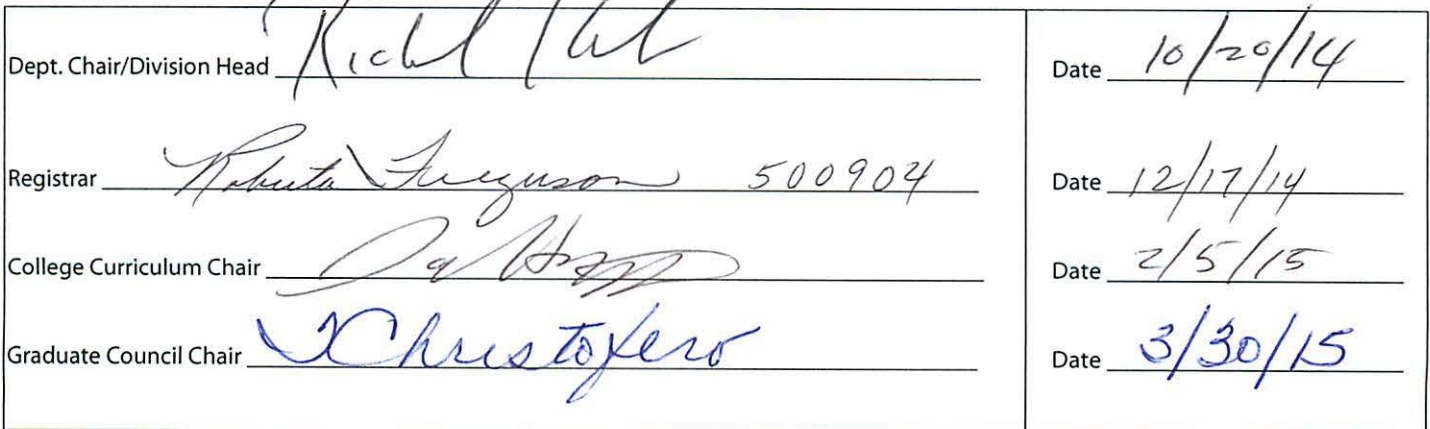 Dept. Chair/Division Head Date 10/20/14
Registrar Roberta Ferguson 500904 Date 12/17/14
College Curriculum Chair Date 2/5/15
Graduate Council Chair TChristofero Date 3/30/15